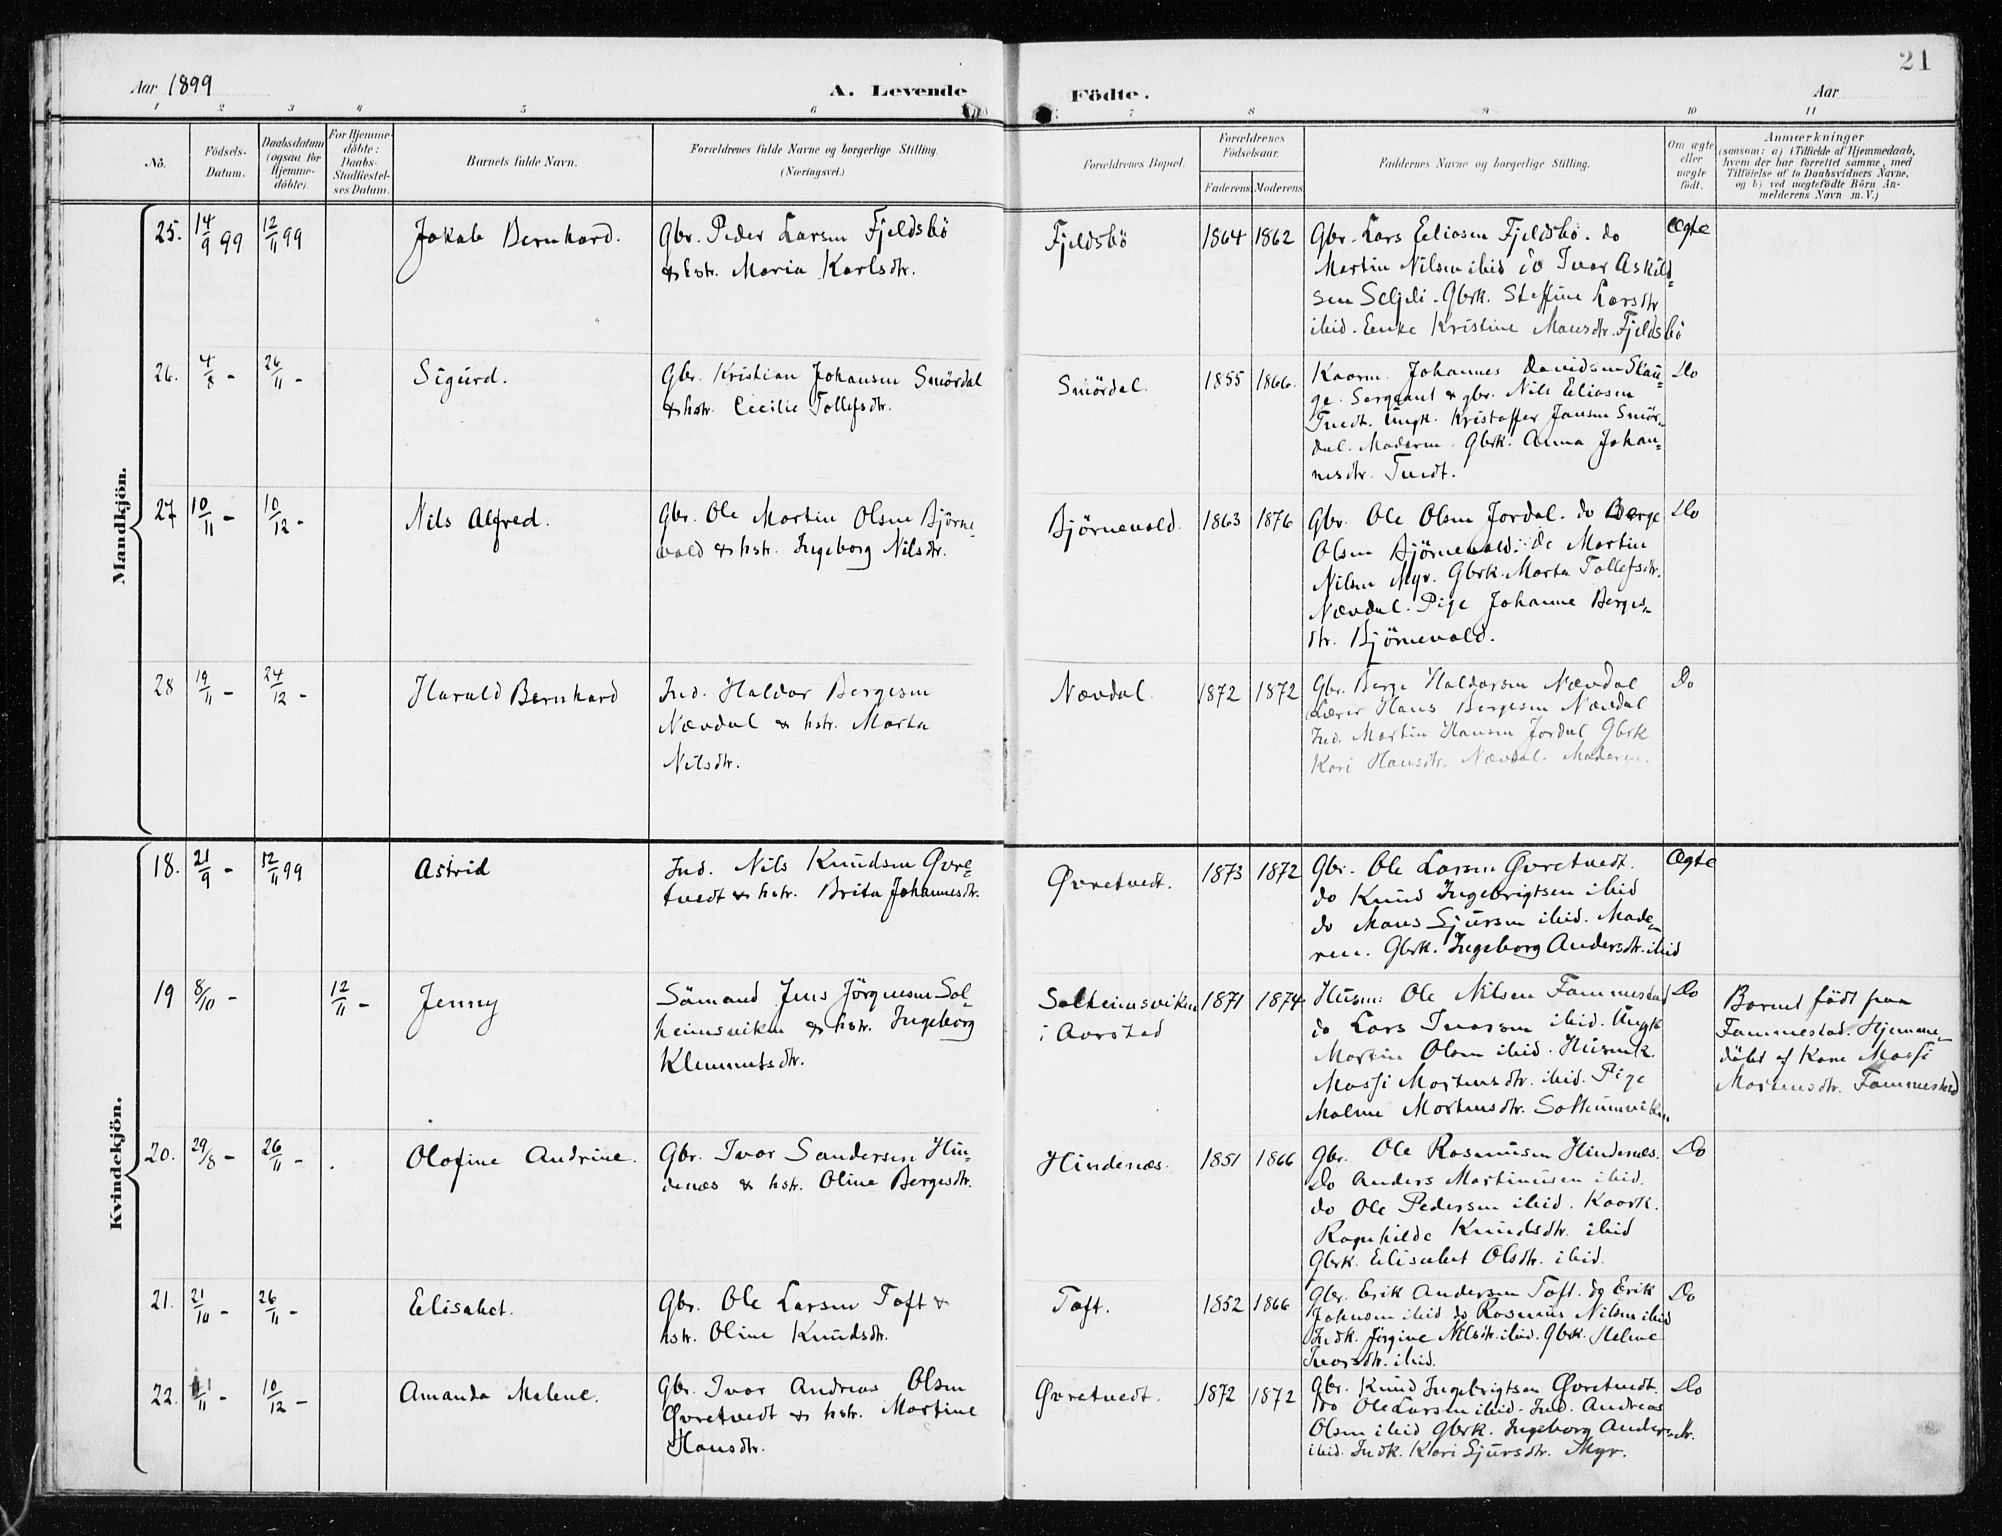 21
Aar 1899
A. Levende
Födte.
Aar
1 2 3 4 5 6 7 8 9 10 11
No.
Födsels-
Datum.
Daabsdatum
(ogsaa för
Hjemme-
döbte).
For Hjemme-
döbte:
Daabs-
Stadfæstel-
ses Datum.
Barnets fulde Navn.
Forældrenes fulde Navne og borgerlige Stilling.
(Næringsvei.)
Forældrenes Bopæl.
Forældrenes
Födselsaar.
Faderens Moderens
Faddernes Navne og borgerlige Stilling.
Om ægte
eller
uægte
födt.
Anmærkninger
(saasom: a) i Tilfælde af Hjemmedaab,
hvem der har forrettet samme, med
Tilföielse af to Daabsvidners Navne,
og b) ved uægtefödte Börn An-
melderens Navn m.V.)
Mandkjön.
25. 14/9 99 12/11 99 Jakob Bernhard.
Gbr. Peder Larsen Fjeldsbö
& hstr. Maria Karlsdtr.
Fjeldsbö 1864 1862
Gbr. Lars Eliasen Fjeldsbö. do
Martin Nilsen ibid do Ivar Askild=
sen Seljeli. Gbrk. Steffine Larsdtr
ibid. Enke Kristine Mausdtr. Fjeldsbö
Ægte
26. 26/11 - Sigurd.
Gbr. Kristian Johansen Smördal
& hstr. Cecilie Tollefsdtr.
Smördal. 1855 1866.
Kaarm. Johannes Davidsen Skau=
ge. Sergeant & gbr. Nils Eliasen
Tvedt. Ungk. Kristoffer Jansen Smör=
dal. Moderen. Gbrk. Anna Johan=
nesdtr. Tvedt.
Do
27 10/11 - 10/12 - Nils Alfred.
Gbr. Ole Martin Olsen Björne=
vald & hstr. Ingeborg Nilsdtr.
Björnevald. 1863 1876
Gbr. Ole Olsen Jordal. do Berge
Olsen Björnevald. do Martin
Nilsen Myr. Gbrk. Marta Tollefsdtr.
Nævdal. Pige Johanne Berges=
dtr. Björnevald.
Do
28 19/11 - 24/12 - Harald Bernhard
Ind. Haldor Bergesen
Nævdal & hstr. Marta
Nilsdtr.
Nævdal. 1872 1872
Gbr. Berge Haldorsen Nævdal
Lærer Hans Bergesen Nævdal
Ind. Martin Hansen Jordal Gbrk
Kari Hansdtr. Nævdal. Moderen.
Do
Kvindekjön.
18. 21/9 - 12/11 99 Astrid
Ind. Nils Knudsen Øvre=
tvedt & hstr. Brita Johannesdtr.
Øvretvedt. 1873 1872
Gbr. Ole Larsen Øvretvedt.
do Knud Ingebrigtsen ibid
do Mons Sjursen ibid. Mode=
ren. Gbrk. Ingeborg Andersdtr. ibid
Ægte
19 8/10 - 12/11 - Jenny
Sömand Jens Jörgensen Sol=
heimsviken & hstr. Ingeborg
Klemmetsdtr.
Solheimsviken
i Aarstad
1871 1874
Husm. Ole Nilsen Fammestad
do Lars Ivarsen ibid. Ungk
Martin Olsen ibid. Husmk.
Massi Mortensdtr. ibid. Pige
Malene Mortensdtr. Solheimsviken
Do
Barnet födt paa
Fammestad. Hjemme=
döbt af Kone Massi
Mortensdtr. Fammestad
20. 29/8 - 26/11 - Olofine Andrine.
Gbr. Ivar Sandersen Hin=
denæs & hstr. Oline Bergesdtr.
Hindenæs. 1851 1866
Gbr. Ole Rasmusen Hindenæs.
Do Anders Martinusen ibid.
do Ole Pedersen ibid. Kaark.
Ragnhilde Knudsdtr. ibid
Gbrk. Elisabet Olsdtr. ibid.
Do
21. 21/10 - 26/11 - Elisabet.
Gbr. Ole Larsen Toft &
hstr. Oline Knudsdtr.
Toft. 1852 1866
Gbr. Erik Andersen Toft. do Erik
Johnsen ibid do Rasmus Nilsen ibid
Indk. Jörgine Nilsdtr. ibid. Gbrk. Helene
Ivarsdtr. ibid.
Do
22. 10/12 - Amanda Malene.
Gbr. Ivar Andreas Olsen
Øvretvedt & hstr. Martine
Hansdtr.
Øvretvedt. 1872 1872
Gbr. Knud Ingebrigtsen Øvretvedt.
do Ole Larsen ibid. Ind. Andreas
Olsen ibid Gbrk. Ingeborg Andersdtr.
ibid. Indk. Kari Sjursdtr. Myr.
Do